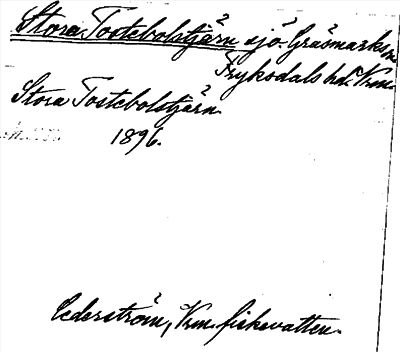 Stora Tostebolstjärn sjö. Gräsmarks sn
Fryksdals hd. Vrm.
Stora Tostebolstjärn.
1896.
Cederström, Vrm. fiskevatten.